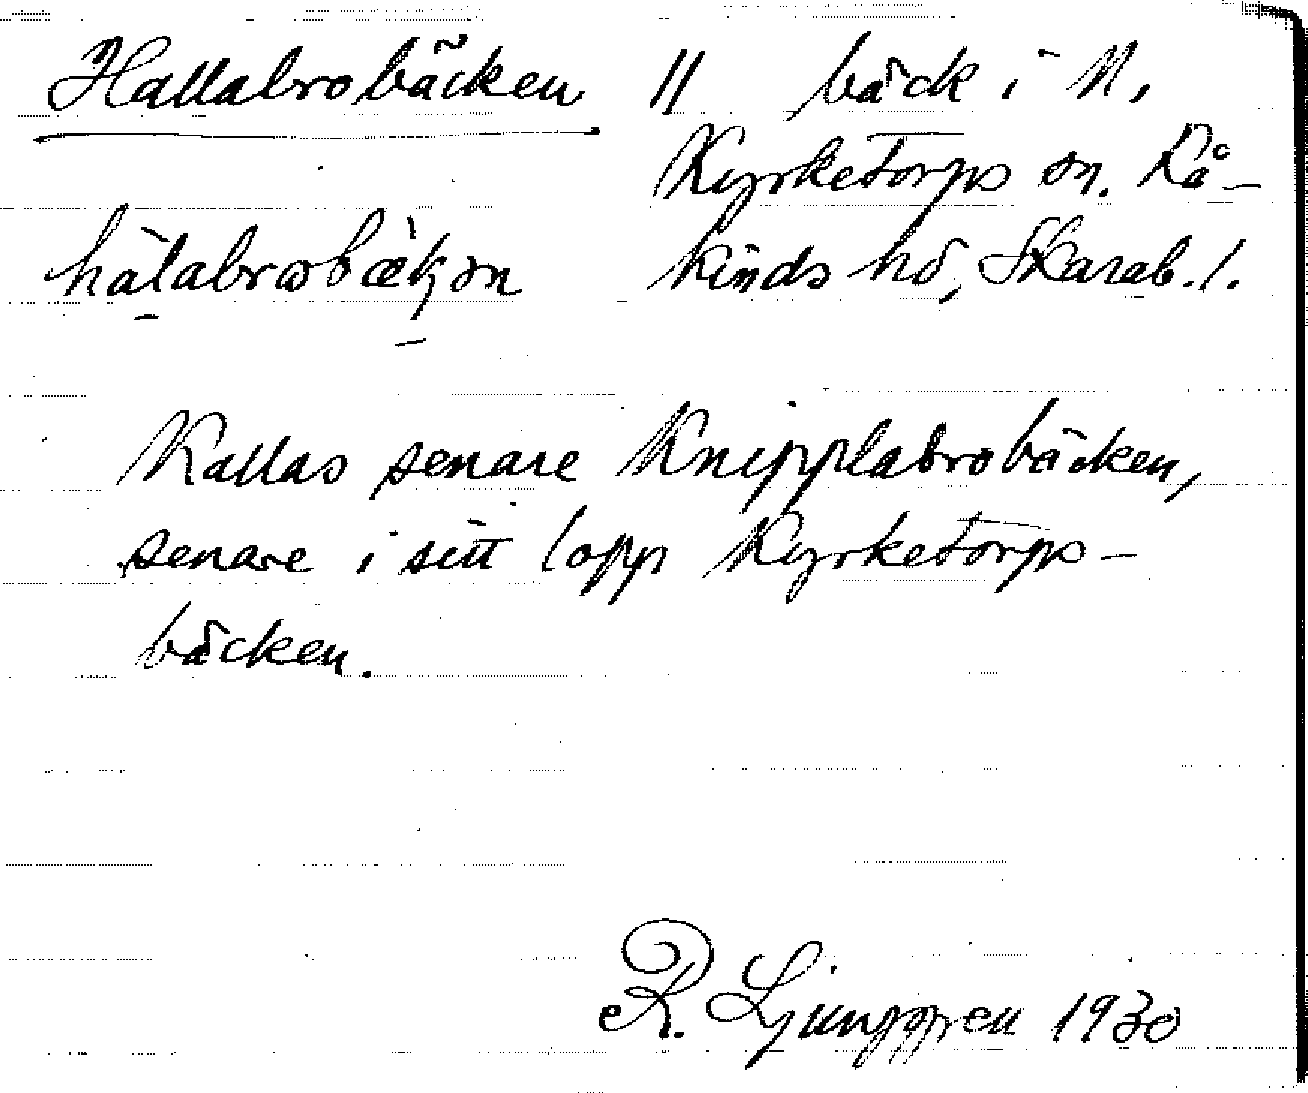 Hallabrobäcken // bäck i N,
Kyrketorps sn. Kå-
kinds hd, Skarab. l.
hàlabrωbæ̀kən
Kallas senare Knipplabrobäcken,
senare i sitt lopp Kyrketorps-
bäcken.
R. Ljunggren 1930